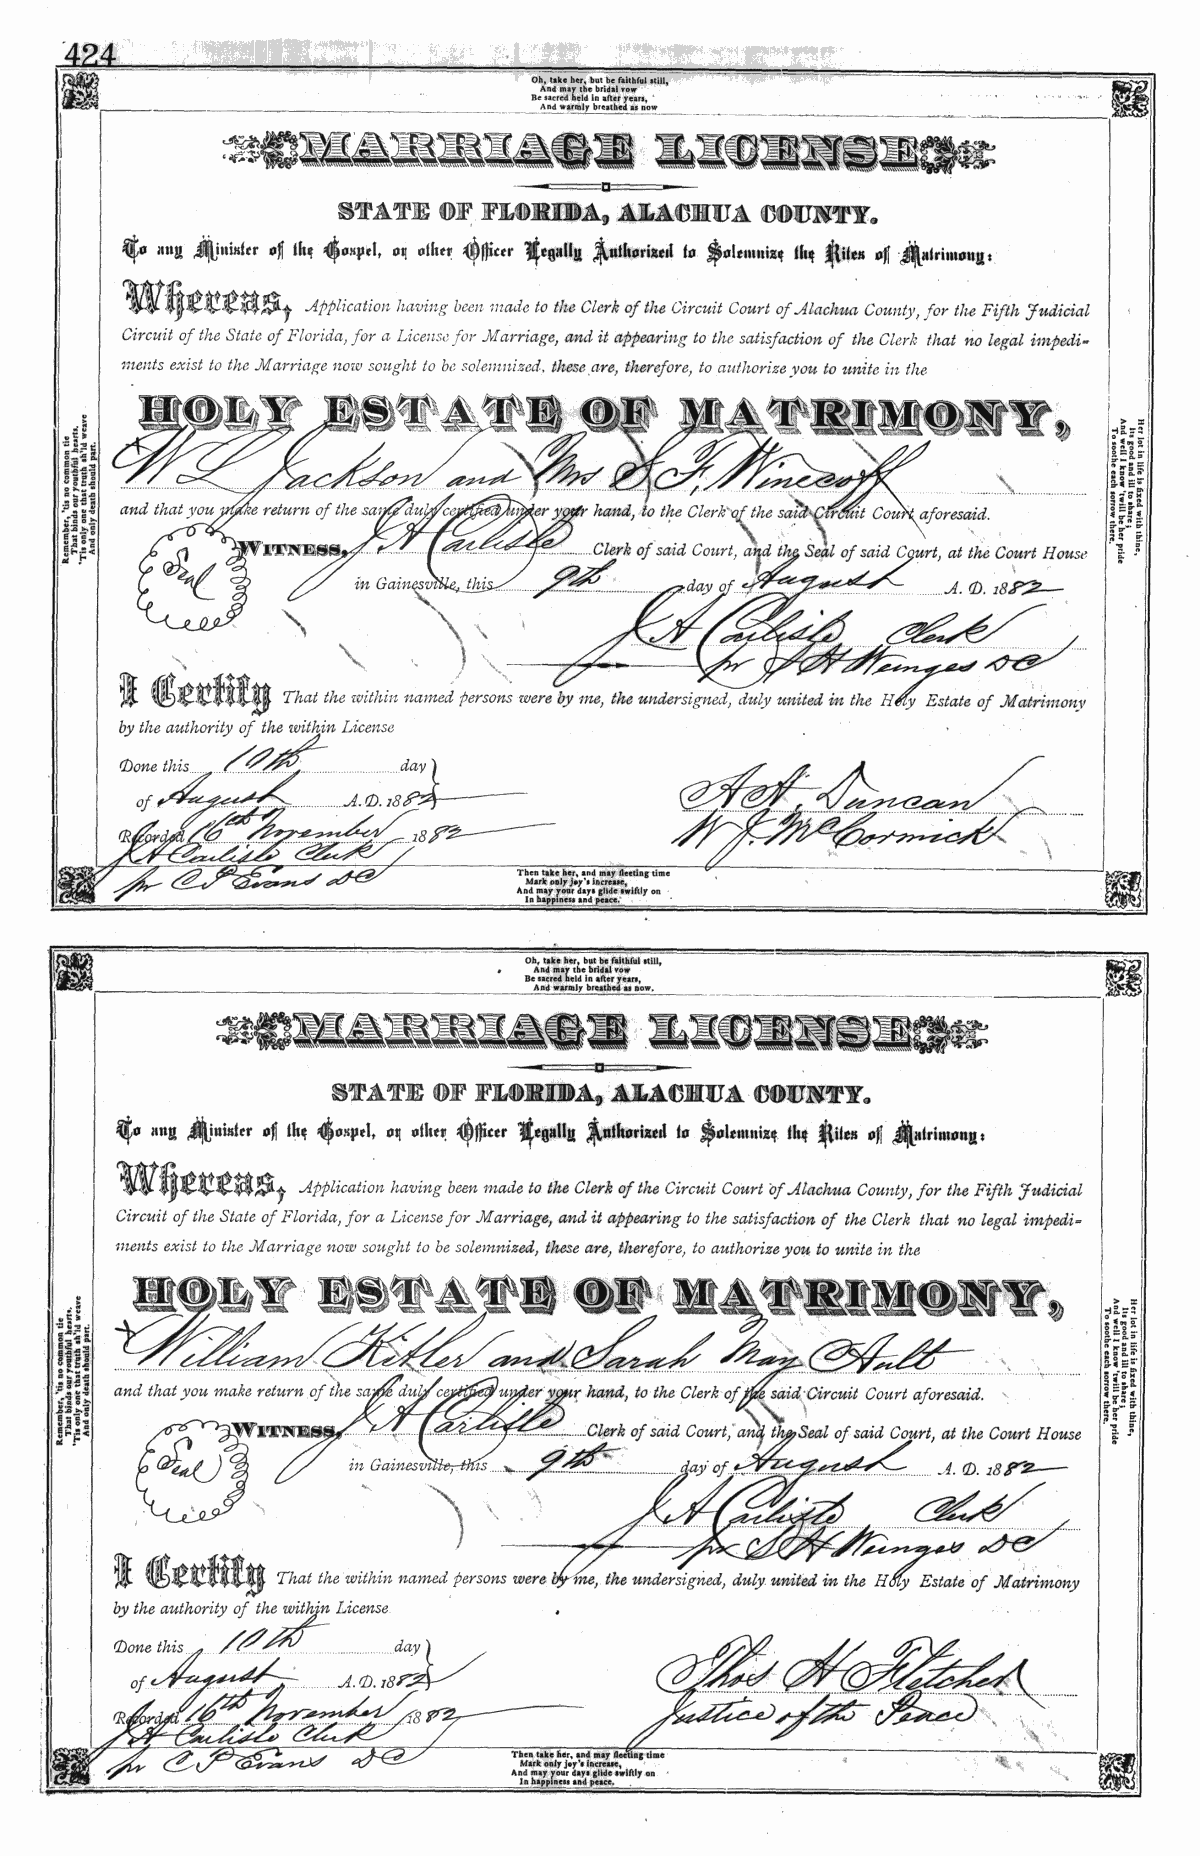 424
Oh, take her, but be faithful still,
And may the bridal vow
Be sacred held in after years,
And warmly breathed as now
MARRIAGE LICENSE
STATE OF FLORIDA, ALACHUA COUNTY.
To any Minister of the Gospel, or other Officer Legally Authorized to Solemnize the Rites of Matrimony:
Whereas, Application having been made to the Clerk of the Circuit Court of Alachua County, for the Fifth Judicial
Circuit of the State of Florida, for a License for Marriage, and it appearing to the satisfaction of the Clerk that no legal impedi-
ments exist to the Marriage now sought to be solemnized, these are, therefore, to authorize you to unite in the
HOLY ESTATE OF MATRIMONY,
W L Jackson and Mrs S. F. Winecoff
and that you make return of the same duly certified under your hand, to the Clerk of the said Circuit Court aforesaid.
Seal
WITNESS, J A Carlisle Clerk of said Court, and the Seal of said Court, at the Court House
in Gainesville, this 9th day of August A. D. 1882
J A Carlisle Clerk
pr S H Wienges DC
I Certify That the within named persons were by me, the undersigned, duly united in the Holy Estate of Matrimony
by the authority of the within License
Done this 10th day
of August A.D. 1882
A A. Duncan
W J. McCormick
Recorded 16th November 1882
J A Carlisle Clerk
pr C P Evans DC
Remember, 'tis no common tie
That binds our youthful hearts,
'Tis only one that truth sh'ld weave
And only death should part.
Her lot in life is fixed with thine,
Its good and ill to share;
And well I know 'twill be her pride
To soothe each sorrow there.
Then take her, and may fleeting time
Mark only joy's increase,
And may your days glide swiftly on
In happiness and peace.
Oh, take her, but be faithful still,
And may the bridal vow
Be sacred held in after years,
And warmly breathed as now.
MARRIAGE LICENSE
STATE OF FLORIDA, ALACHUA COUNTY.
To any Minister of the Gospel, or other Officer Legally Authorized to Solemnize the Rites of Matrimony:
Whereas, Application having been made to the Clerk of the Circuit Court of Alachua County, for the Fifth Judicial
Circuit of the State of Florida, for a License for Marriage, and it appearing to the satisfaction of the Clerk that no legal impedi-
ments exist to the Marriage now sought to be solemnized, these are, therefore, to authorize you to unite in the
HOLY ESTATE OF MATRIMONY,
William Kitler and Sarah May Ault
and that you make return of the same duly certified under your hand, to the Clerk of the said Circuit Court aforesaid.
Seal
WITNESS, J A Carlisle Clerk of said Court, and the Seal of said Court, at the Court House
in Gainesville, this 9th day of August A. D. 1882
J A Carlisle Clerk
pr S H Wienges DC
I Certify That the within named persons were by me, the undersigned, duly united in the Holy Estate of Matrimony
by the authority of the within License
Done this 10th day
of August A.D. 1882
Thos H Fletcher
Justice of the Peace
Recorded 16th November 1882
J A Carlisle Clerk
pr C P Evans DC
Remember, 'tis no common tie
That binds our youthful hearts,
'Tis only one that truth sh'ld weave
And only death should part.
Her lot in life is fixed with thine,
Its good and ill to share;
And well I know 'twill be her pride
To soothe each sorrow there.
Then take her, and may fleeting time
Mark only joy's increase,
And may your days glide swiftly on
In happiness and peace.